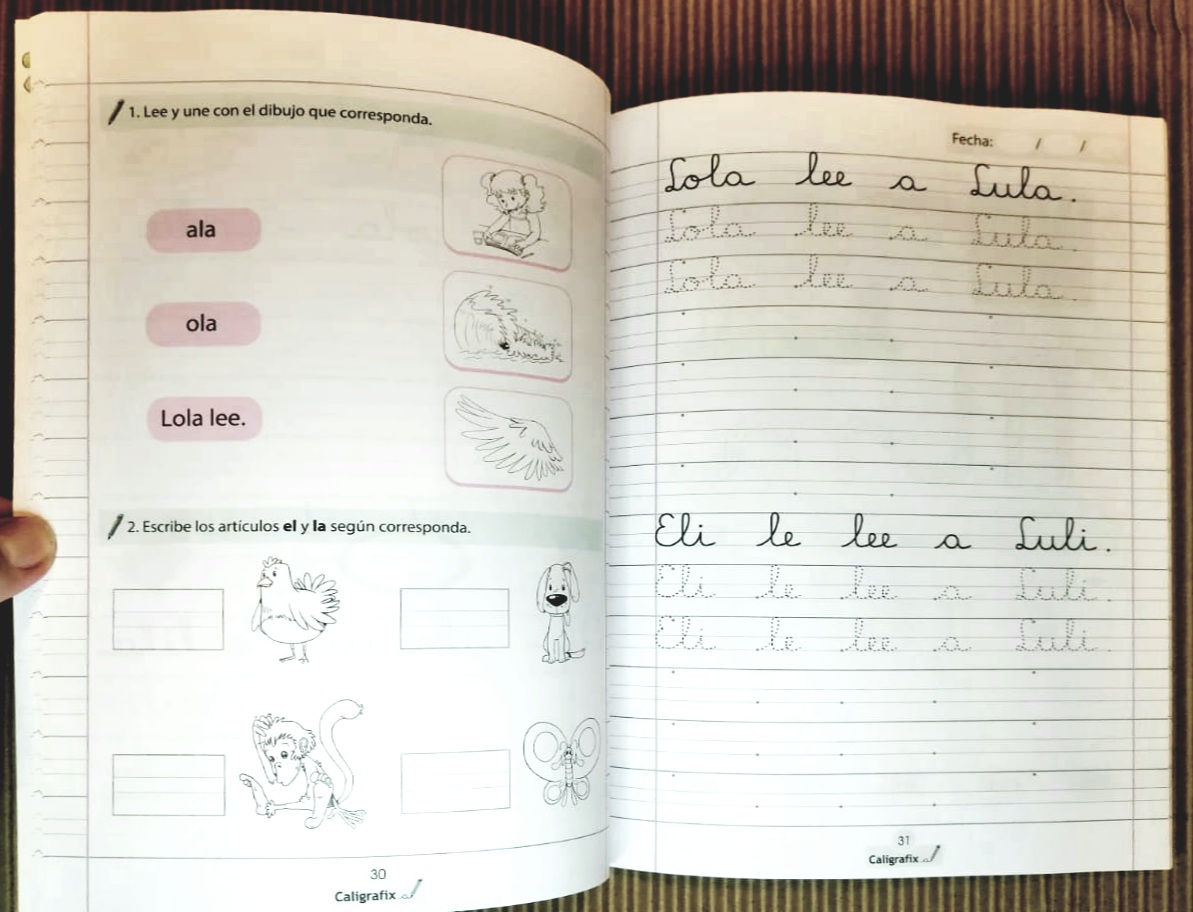 1. Lee y une con el dibujo que corresponda.
ala
ola
Lola lee.
2. Escribe los artículos el y la según corresponda.
30
Caligrafix
Fecha: / /
Lola lee a Lula.
Lola lee a Lula.
Lola lee a Lula.
Eli le lee a Luli.
Eli le lee a Luli.
Eli le lee a Luli.
31
Caligrafix